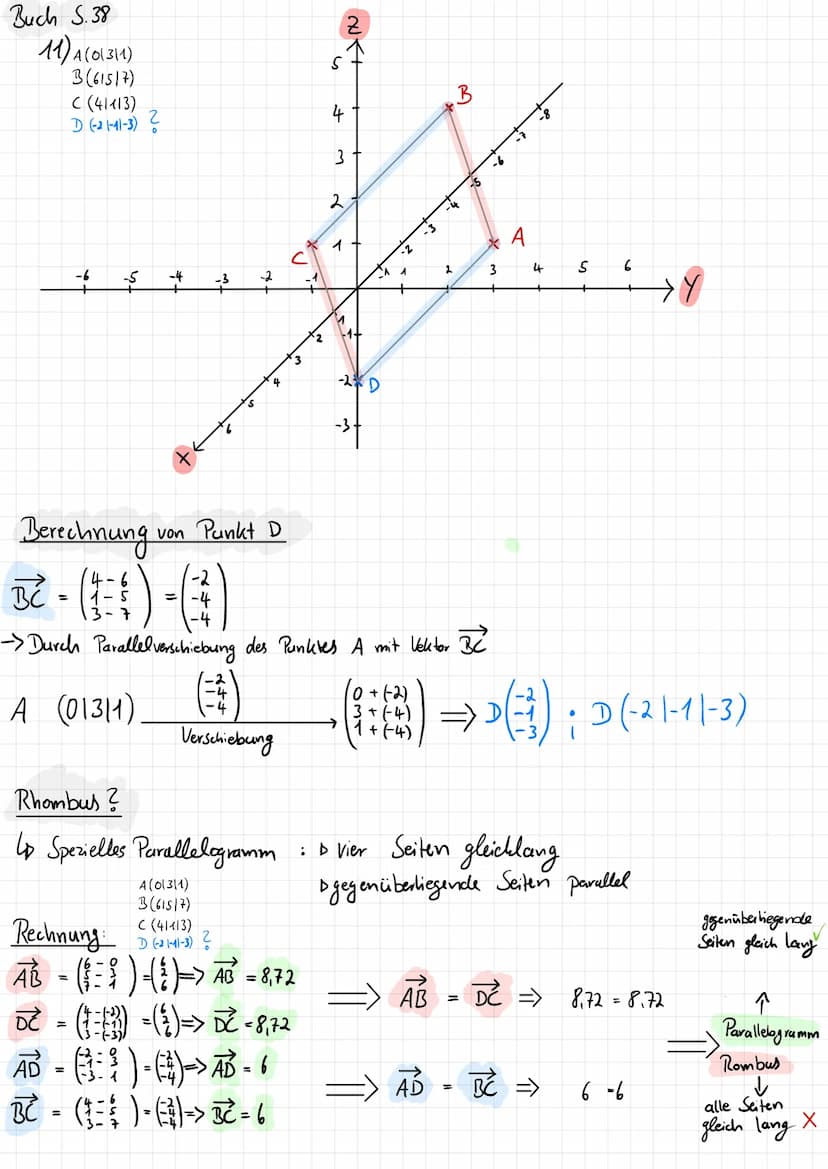 Buch S.38
11) A(0|3|1)
B(6|5|7)
C(4|1|3)
D(-2|-1|-3) ?
Z
5
4
3
2
1
B
A
C
D
-8
-7
-6
-5
-4
-3
-2
-1
-6 -5 -4 -3 -2 -1 1 2 3 4 5 6
Y
-1
-2
-3
1
2
3
4
5
6
X
Berechnung von Punkt D
BC = (4-6 1-5 3-7) = (-2 -4 -4)
-> Durch Parallelverschiebung des Punktes A mit Vektor BC
A (0|3|1) (-2 -4 -4) Verschiebung (0+(-2) 3+(-4) 1+(-4)) => D(-2 -1 -3) ; D(-2|-1|-3)
Rhombus?
↳ Spezielles Parallelogramm : ▷ vier Seiten gleichlang
▷ gegenüberliegende Seiten parallel
A(0|3|1)
B(6|5|7)
C(4|1|3)
D(-2|-1|-3) ?
Rechnung:
AB = (6-0 5-3 7-1) = (6 2 6) => AB = 8,72
DC = (4-(-2) 1-(-1) 3-(-3)) = (6 2 6) => DC = 8,72
AD = (-2-0 -1-3 -3-1) = (-2 -4 -4) => AD = 6
BC = (4-6 1-5 3-7) = (-2 -4 -4) => BC = 6
=> AB = DC => 8,72 = 8,72
=> AD = BC => 6 = 6
gegenüberliegende
Seiten gleich lang ✓
↑
=> Parallelogramm
Rombus
↓
alle Seiten
gleich lang X